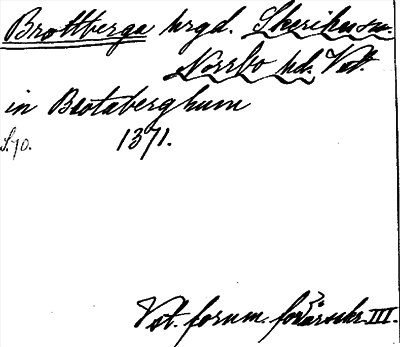 Brottberga hrgd. Skerikes sn.
Norrbo hd. Vst.
in Brotaberghum
S. 70. 1371.
Vst. fornm. för. årsskr. III.